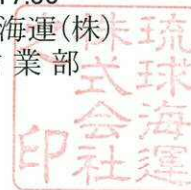 海運(株)
業部
琉球海運
株式会社
印